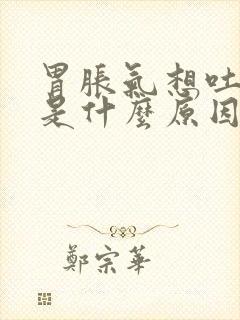 胃脹氣想吐
是什麼原因
鄭宗華